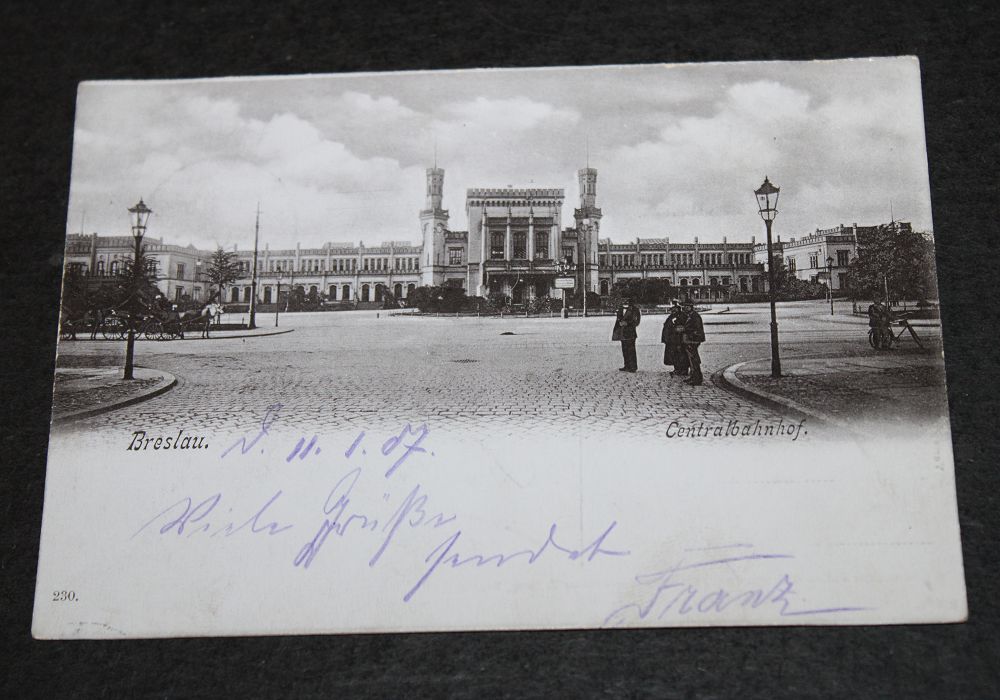 Breslau.
Centralbahnhof.
D. 11. 1. 07.
Viele Grüße
sendet
Franz
230.